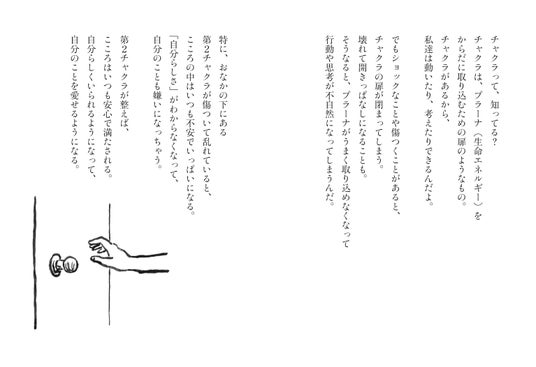 チャクラって、知ってる？
チャクラは、プラーナ（生命エネルギー）を
からだに取り込むための扉のようなもの。
チャクラがあるから、
私達は動いたり、考えたりできるんだよ。
でもショックなことや傷つくことがあると、
チャクラの扉が閉まってしまう。
壊れて開きっぱなしになることも。
そうなると、プラーナがうまく取り込めなくなって
行動や思考が不自然になってしまうんだ。
特に、おなかの下にある
第2チャクラが傷ついて乱れていると、
こころの中はいつも不安でいっぱいになる。
「自分らしさ」がわからなくなって、
自分のことも嫌いになっちゃう。
第2チャクラが整えば、
こころはいつも安心で満たされる。
自分らしくいられるようになって、
自分のことを愛せるようになる。